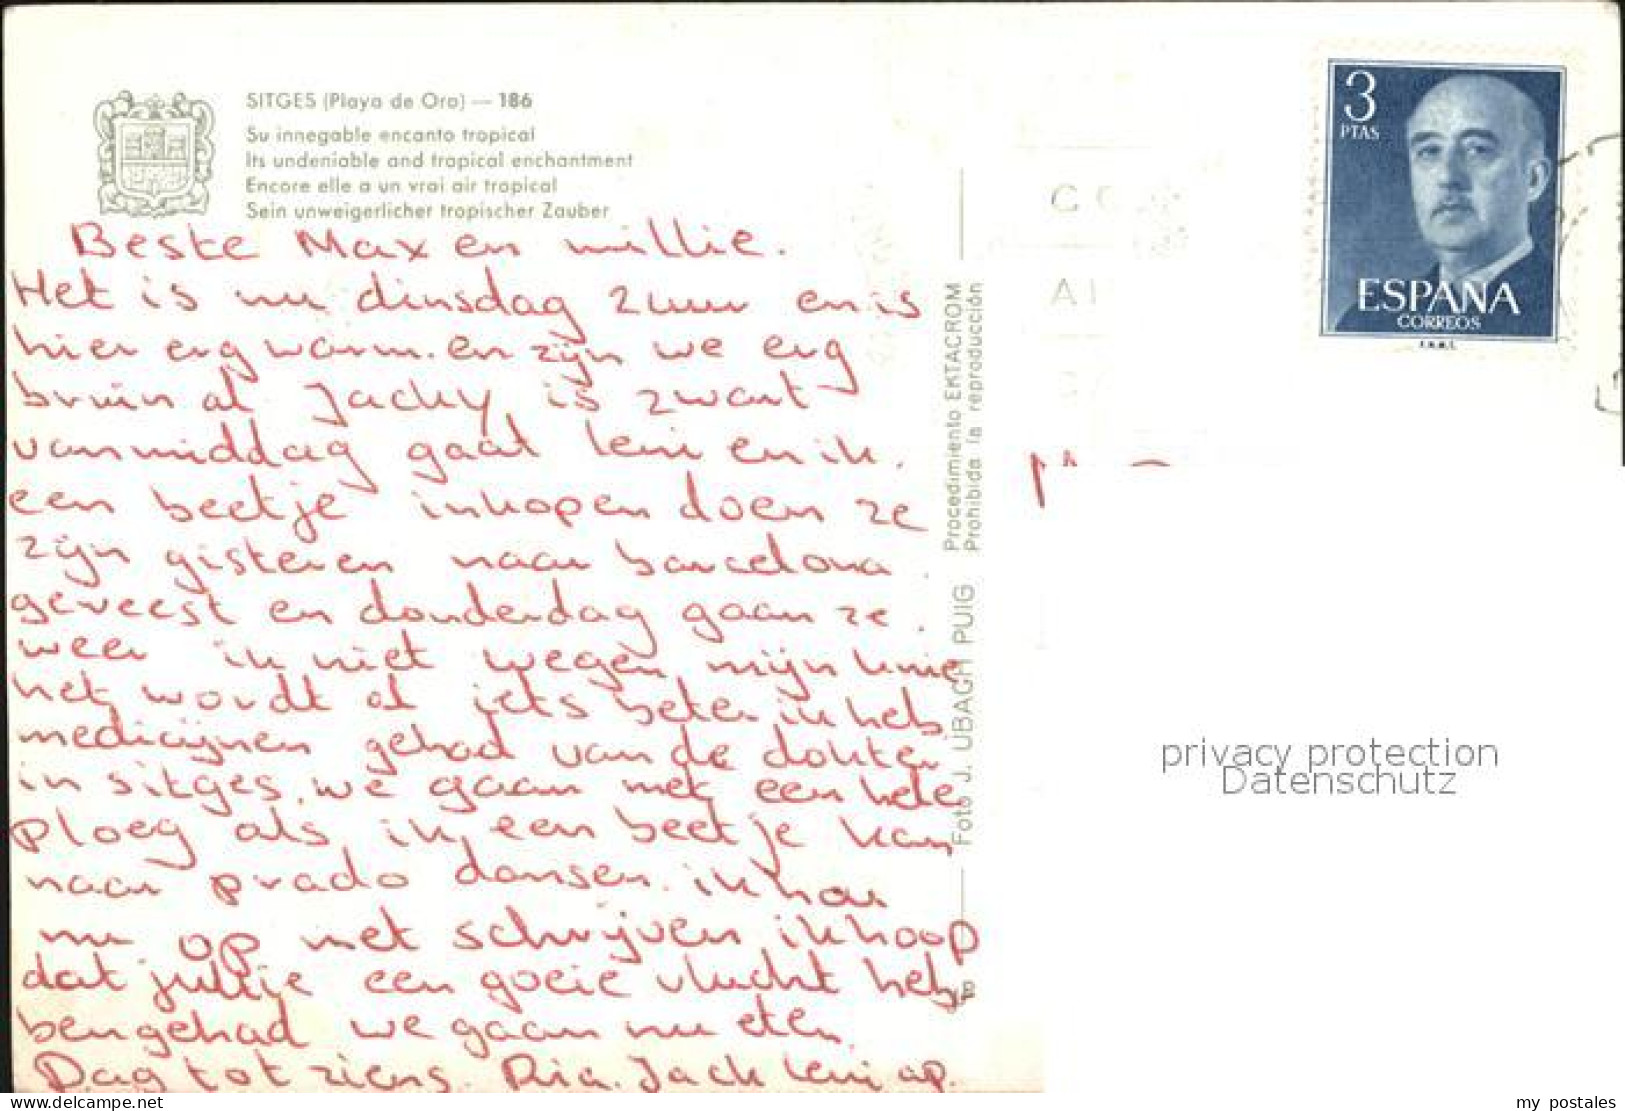 SITGES (Playa de Oro) — 186
Su innegable encanto tropical
Its undeniable and tropical enchantment
Encore elle a un vrai air tropical
Sein unweigerlicher tropischer Zauber
Beste Max en millie.
Het is nu dinsdag 2 uur en is
hier erg warm. en zijn we erg
bruin al Jacky is zwart
vanmiddag gaat leni en ik.
een beetje inkopen doen ze
zijn gisteren naar barcelona.
geweest en donderdag gaan ze.
weer ik niet wegen mijn knie
het wordt al iets beter ik heb
medicijnen gehad van de dokter
in sitges. we gaan met een hele
ploeg als ik een beetje kan
naar prado dansen. ik hou
nu op met schrijven ik hoop
dat jullie een goeie vlucht hebben
gehad we gaan nu eten.
Dag tot ziens. Ria. Jack leni ap.
Foto J. UBACH PUIG
Procedimiento EKTACROM
Prohibida la reproducción
3
PTAS
ESPAÑA
CORREOS
F.N.M.T.
privacy protection
Datenschutz
www.delcampe.net
my_postales